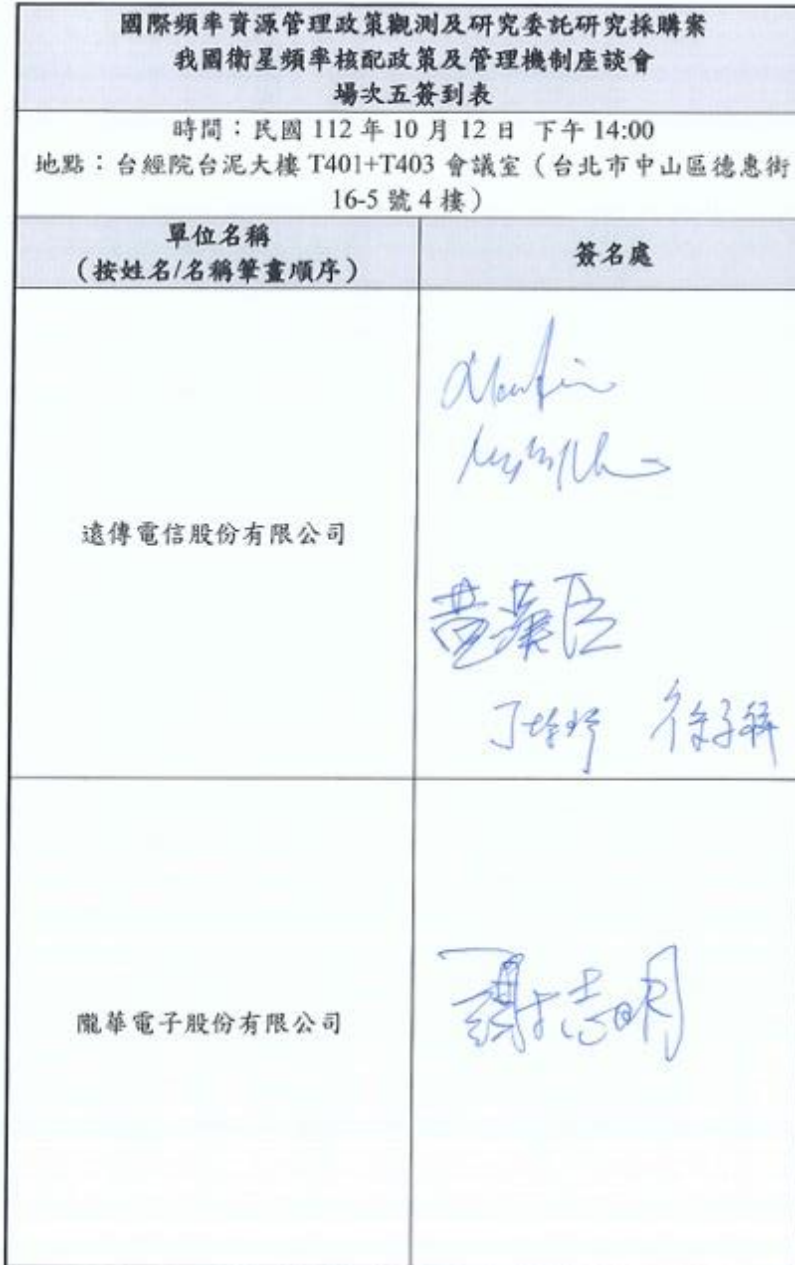 國際頻率資源管理政策觀測及研究委託研究採購案
我國衛星頻率核配政策及管理機制座談會
場次五簽到表
時間：民國 112 年 10 月 12 日 下午 14:00
地點：台經院台泥大樓 T401+T403 會議室（台北市中山區德惠街
16-5 號 4 樓）
單位名稱
（按姓名/名稱筆畫順序）
簽名處
遠傳電信股份有限公司
隴華電子股份有限公司
謝志明